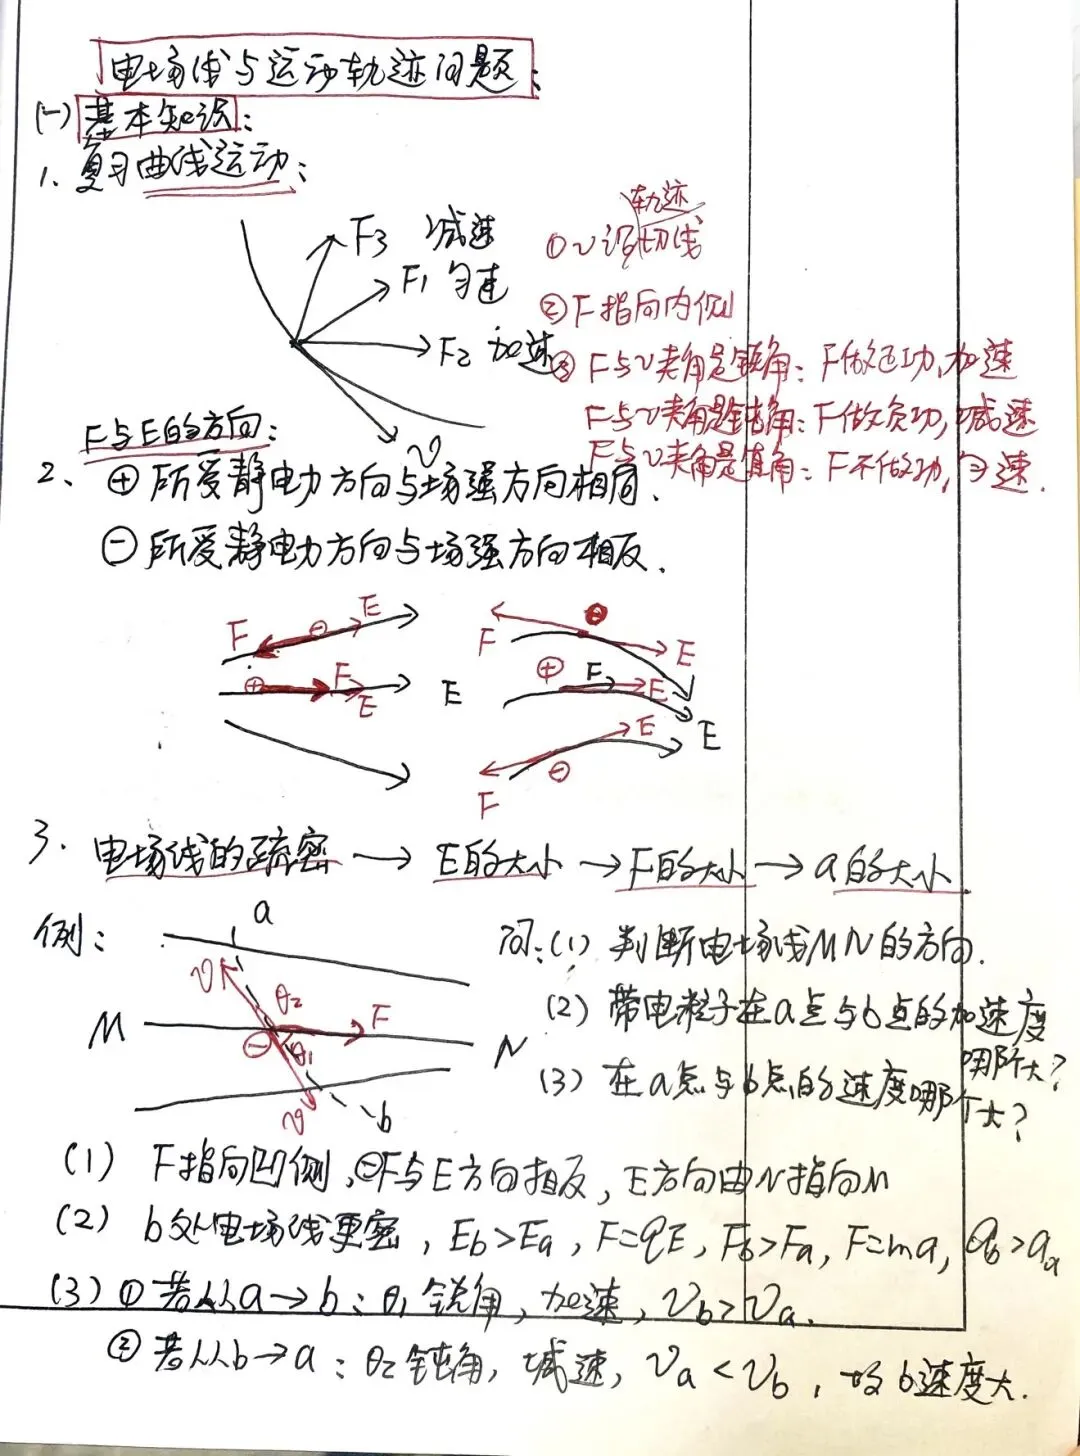 电场线与运动轨迹问题:
(一) 基本知识:
1. 复习曲线运动:
F3 减速
F1 匀速
F2 加速
v
轨迹
①v沿切线
②F指向内侧
③F与v夹角是锐角: F做正功,加速
F与v夹角是钝角: F做负功,减速
F与v夹角是直角: F不做功,匀速.
F与E的方向:
2、⊕所受静电力方向与场强方向相同.
⊖所受静电力方向与场强方向相反.
F ⊖ E
⊕ F E E
F ⊖ E
⊕ F E
F ⊖ E E
3. 电场线的疏密 → E的大小 → F的大小 → a的大小
例:
a
v θ2 F
M ⊖ θ1 N
v b
问:(1) 判断电场线MN的方向.
(2) 带电粒子在a点与b点的加速度
哪个大?
(3) 在a点与b点的速度哪个大?
(1) F指向凹侧,⊖F与E方向相反,E方向由N指向M
(2) b处电场线更密, Eb>Ea, F=qE, Fb>Fa, F=ma, ab>aa
(3) ①若从a→b: θ1锐角,加速, vb>va.
②若从b→a: θ2钝角,减速, va<vb, 故b速度大.